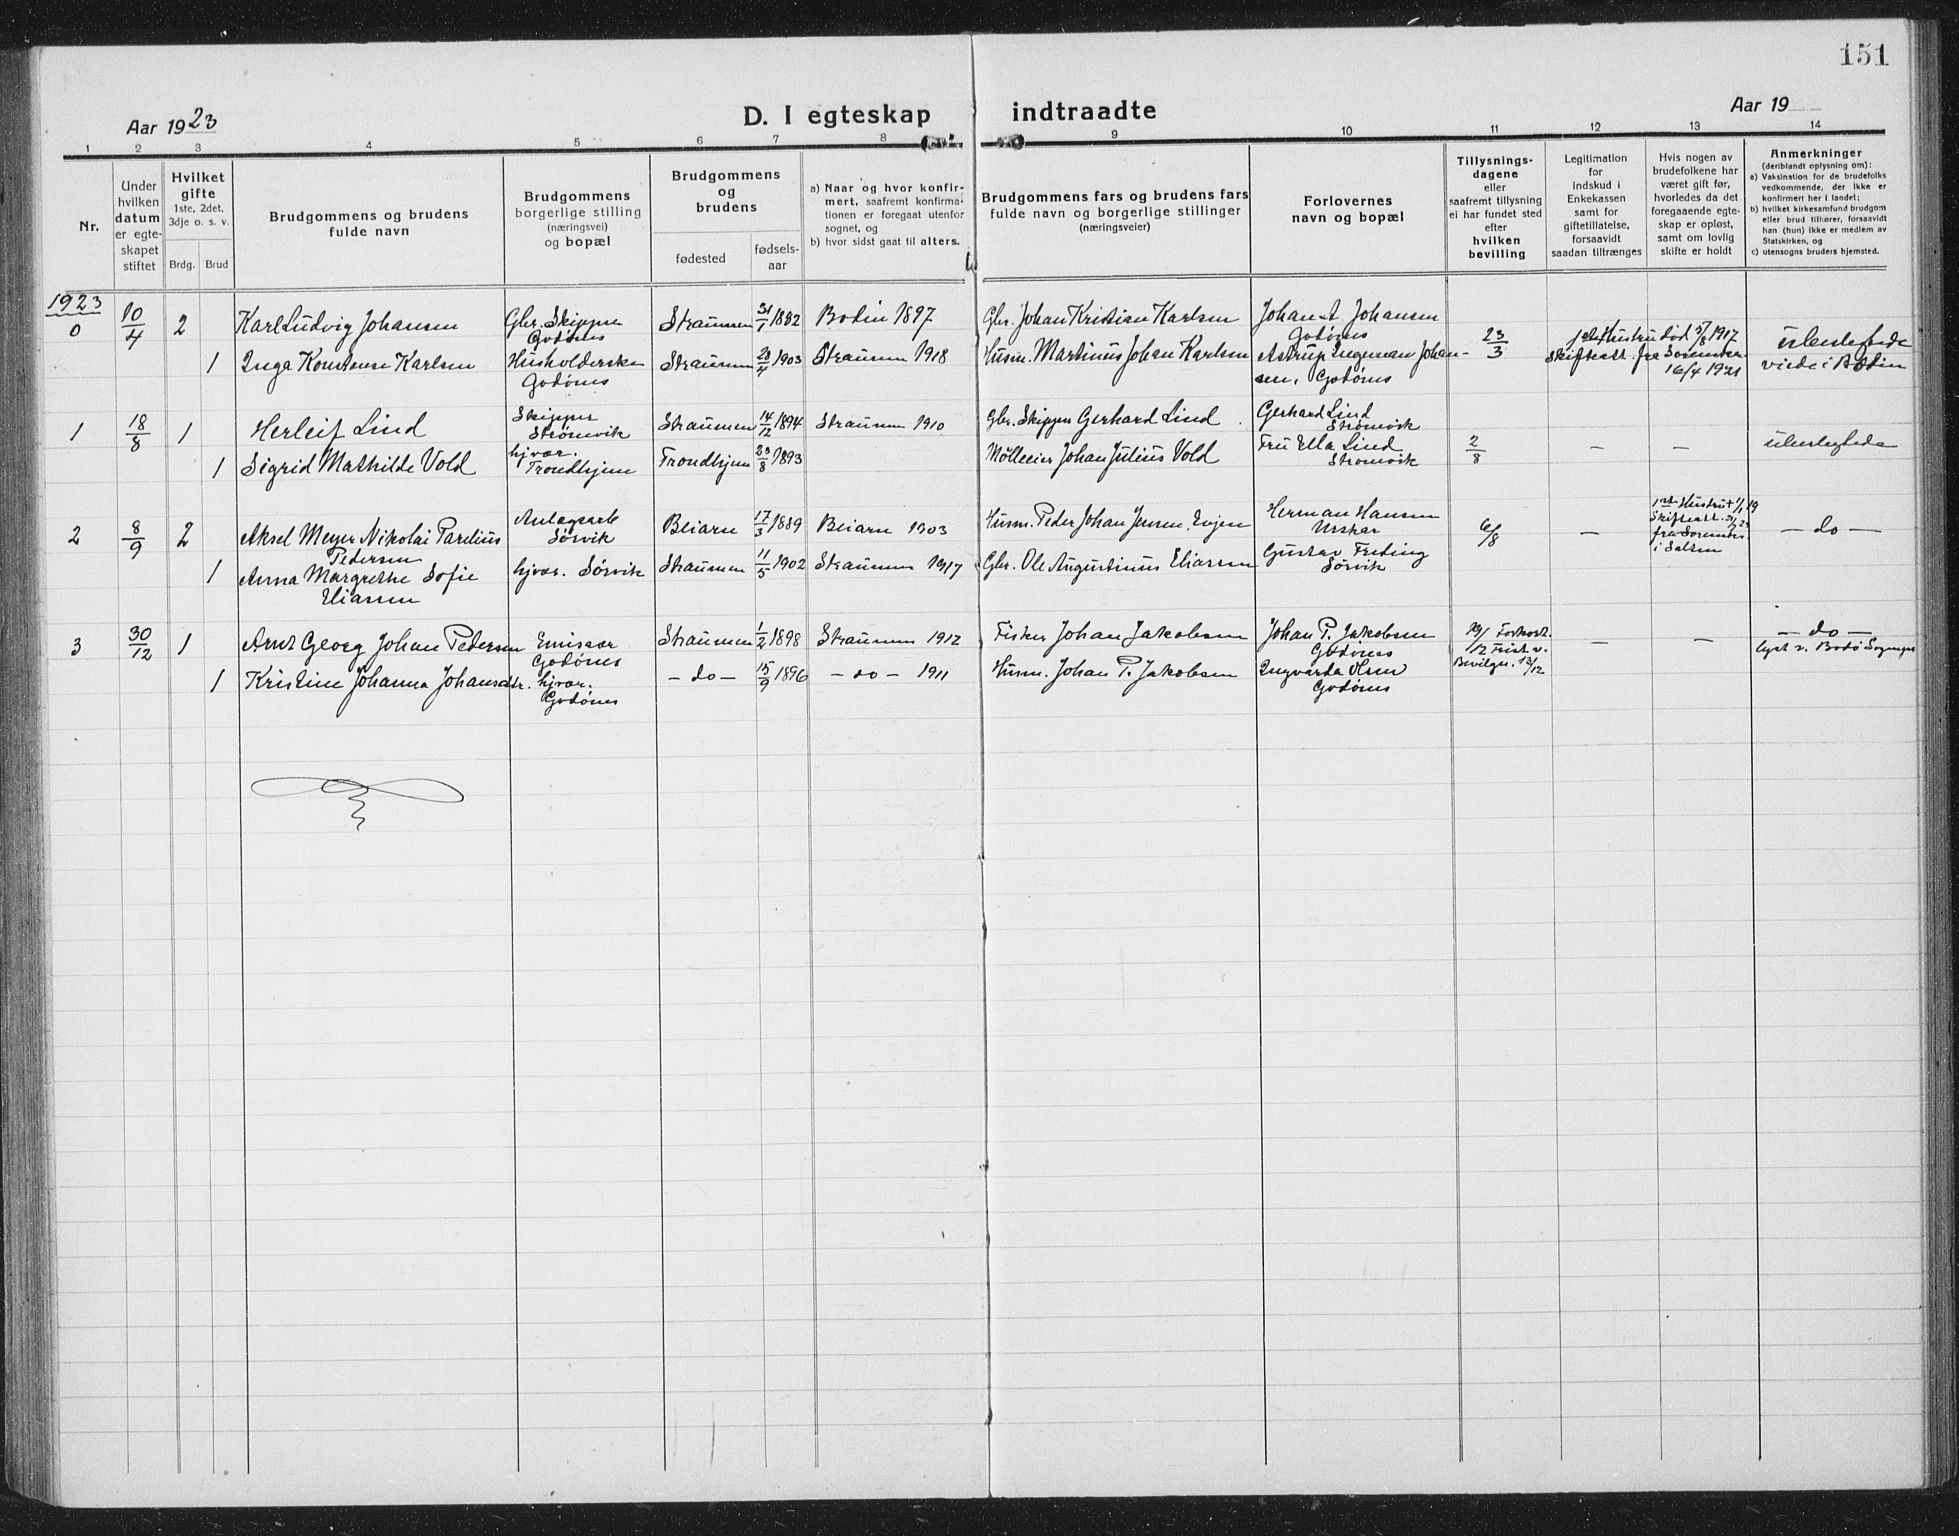 151
Aar 1923
D. I egteskap indtraadte
Aar 19
1 2 3 4 5 6 7 8 9 10 11 12 13 14
Nr.
Under
hvilken
datum
er egte-
skapet
stiftet
Hvilket
gifte
1ste, 2det,
3dje o. s. v.
Brdg. Brud
Brudgommens og brudens
fulde navn
Brudgommens
borgerlige stilling
(næringsvei)
og bopæl
Brudgommens
og
brudens
fødested
fødsels-
aar
a) Naar og hvor konfir-
mert, saafremt konfirma-
tionen er foregaat utenfor
sognet, og
b) hvor sidst gaat til alters.
Brudgommens fars og brudens fars
fulde navn og borgerlige stillinger
(næringsveier)
Forlovernes
navn og bopæl
Tillysnings-
dagene
eller
saafremt tillysning
ei har fundet sted
efter
hvilken
bevilling
Legitimation
for
indskud i
Enkekassen
samt for
giftetillatelse,
forsaavidt
saadan tiltrænges
Hvis nogen av
brudefolkene har
været gift før,
hvorledes da det
foregaaende egte-
skap er opløst,
samt om lovlig
skifte er holdt
Anmerkninger
(deriblandt oplysning om):
a) Vaksination for de brudefolks
vedkommende, der ikke er
konfirmert her i landet;
b) hvilket kirkesamfund brudgom
eller brud tilhører, forsaavidt
han (hun) ikke er medlem av
Statskirken, og
c) utensogns bruders hjemsted.
1923
0 10/4 2 Karl Ludvig Johansen Gbr. Skipper Straumen 31/1 1882 Bodin 1897 Gbr. Johan Kristian Karlsen Johan A Johansen
Godønes Godønes
1 Inga Konstanse Karlsen Husholderske Straumen 20/4 1903 Straumen 1918 Husm. Martinus Johan Karlsen Astrup Ingeman Johan-
Godønes sen, Godønes
23/3 hustru død 3/8 1917
Skifteatt. fra Sorenskr.
16/4 1921
ubeslegtede
viede i Bodin
1 18/8 1 Herleif Lind Skipper Straumen 14/12 1894 Straumen 1910 Gbr. Skipper Gerhard Lind Gerhard Lind
Strømvik Strømvik
1 Sigrid Mathilde Vold hjvær. Trondhjem 23/8 1893 Mølleeier Johan Julius Vold Fru Ella Lind 2/8 — — ubeslegtede
Trondhjem Strømvik
2 8/9 2 Aksel Meyer Nikolai Parelius Anlegsarb Beiarn 17/3 1889 Beiarn 1903 Husm. Peder Johan Jensen Evjen Herman Hansen 6/8 —
Pedersen Sørvik
1ste Hustru + 1/1 19
Skifteatt.
fra Sorenskr.
i Salten
— do —
1 Anna Margrethe Sofie hjvær. Sørvik Straumen 11/5 1902 Straumen 1917 Gbr. Ole Augustinus Eliassen Gustav Freding
Eliassen Sørvik
3 30/12 1 Arnt Georg Johan Pedersen Emissær Straumen 1/2 1898 Straumen 1912 Fisker Johan Jakobsen Johan P. Jakobsen
Godønes Godønes
Forkort.
Frist v.
Bevilgn. 13/12
— — — do —
lyst v. Bodø
1 Kristine Johanna Johansdtr. hjvær. — do — 15/9 1896 — do — 1911 Husm. Johan P. Jakobsen Ingvarda Olsen
Godønes Godønes